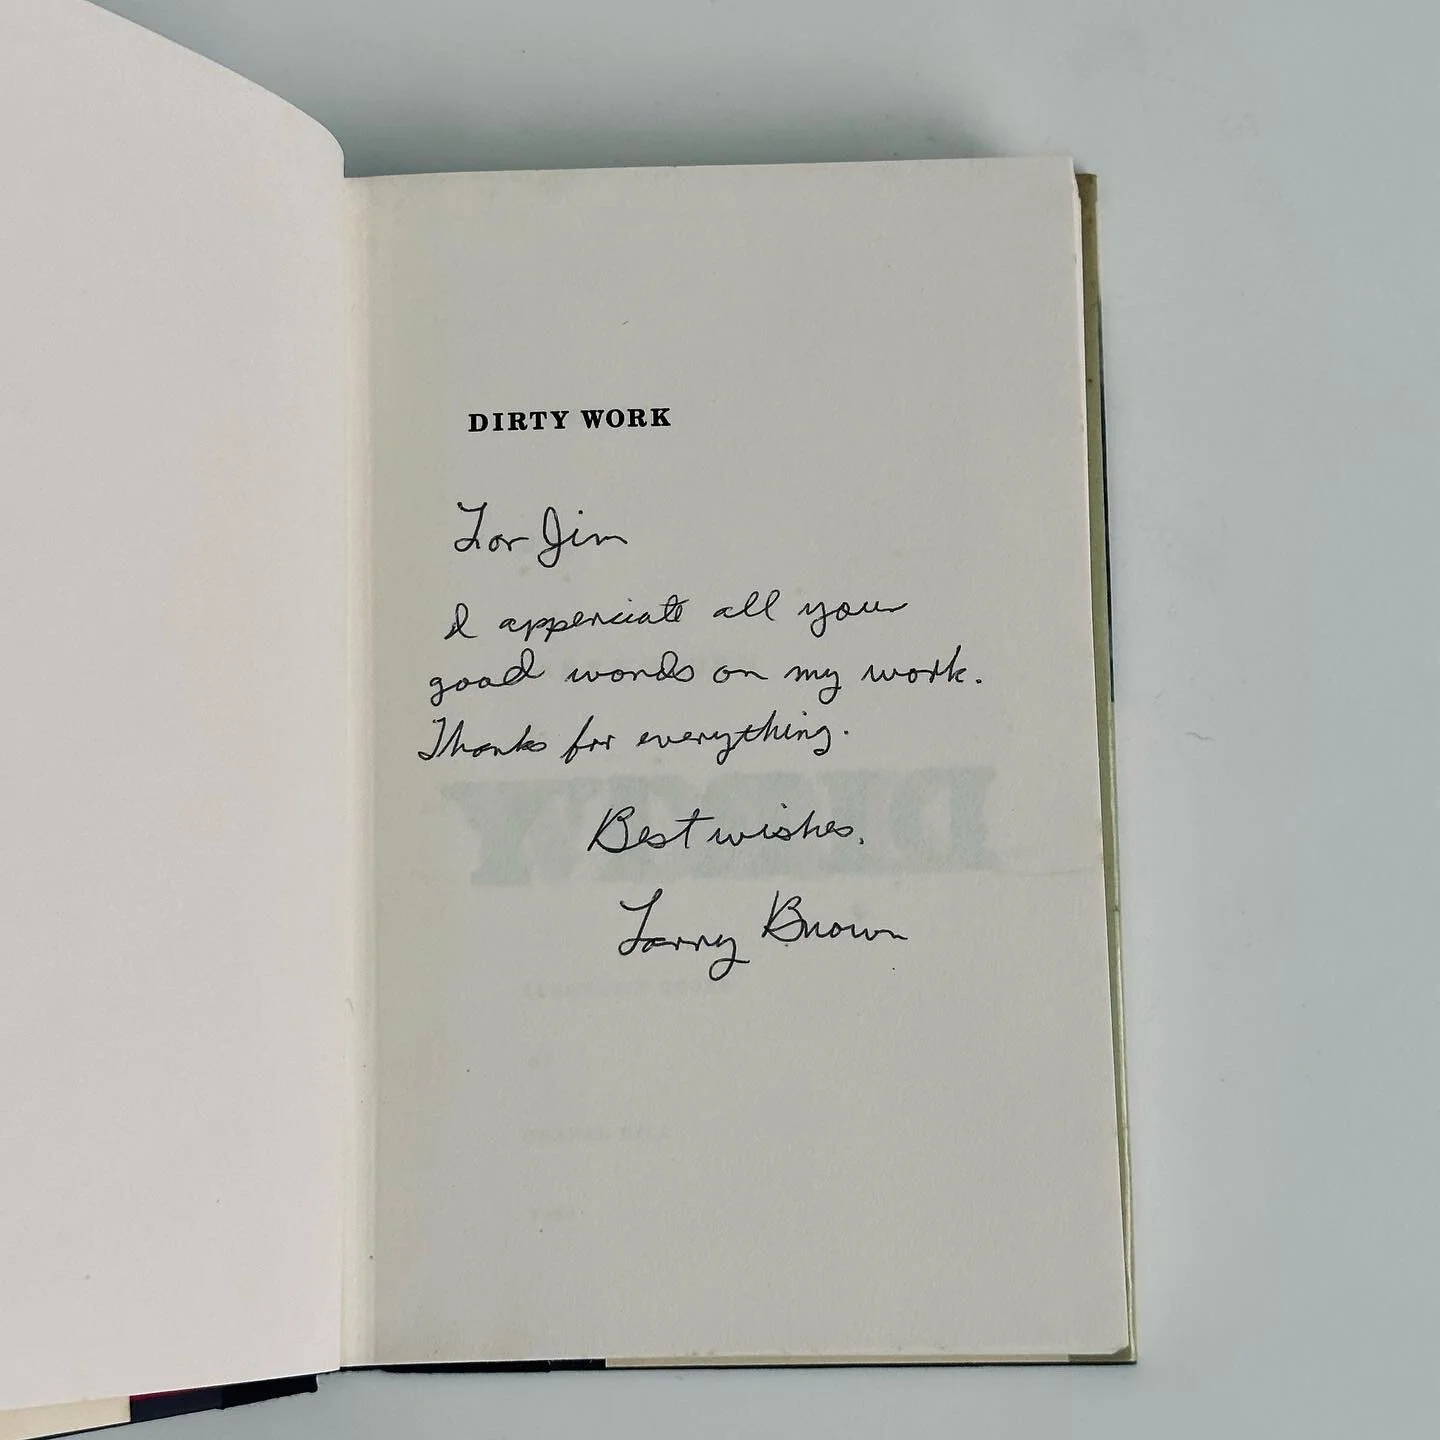 DIRTY WORK
For Jim
I apperciate all your
good words on my work.
Thanks for everything.
Best wishes,
Larry Brown
DIRTY